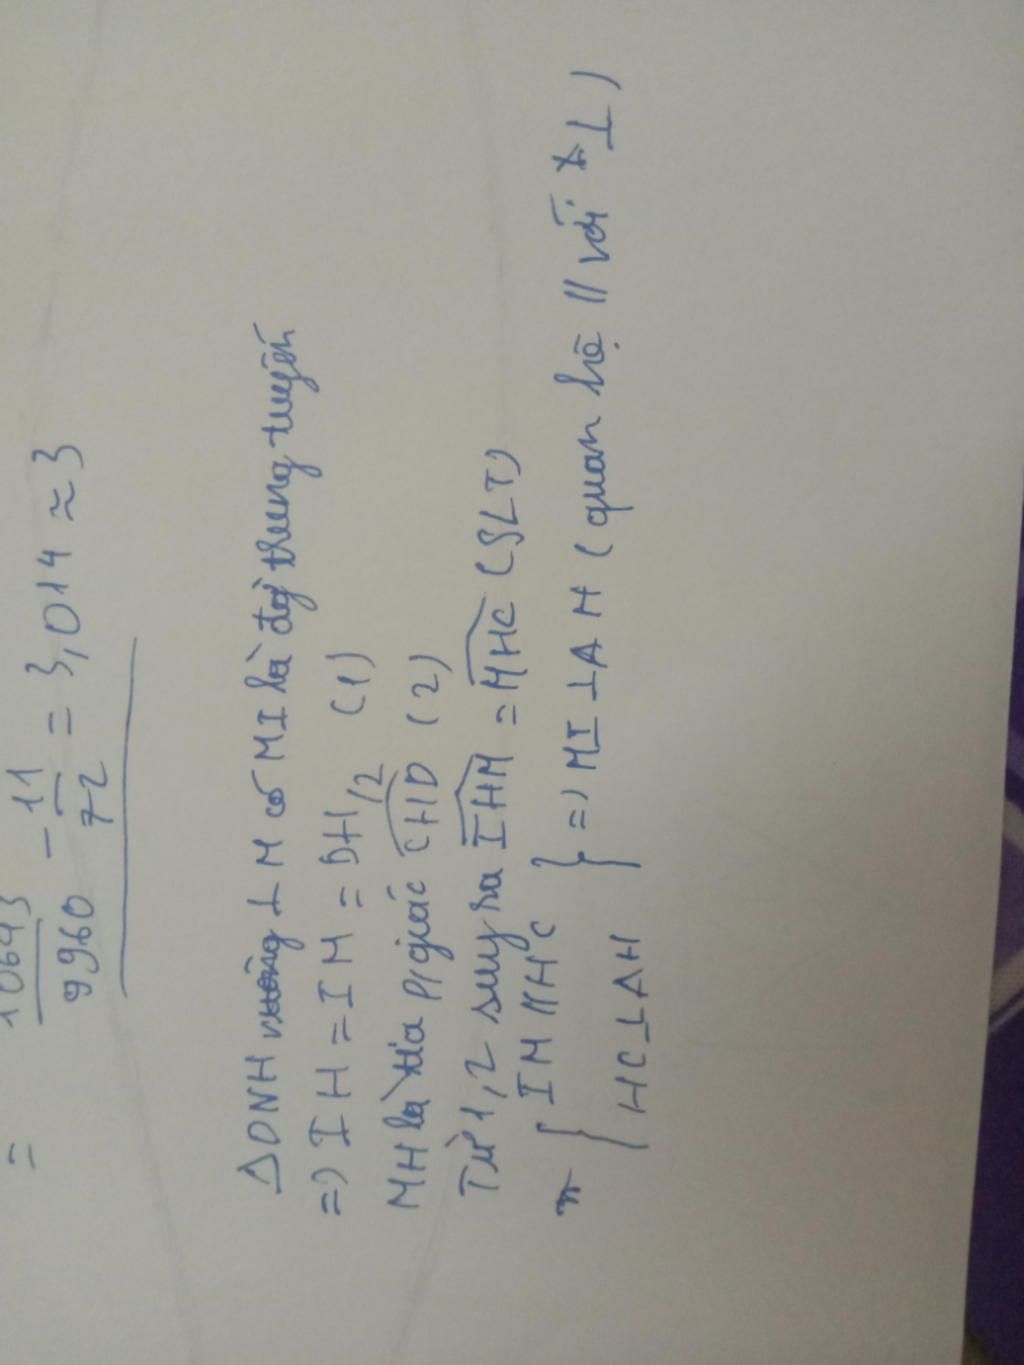 = 10643/9960 - 11/72 = 3,014 ≈ 3
Δ DNH vuông ⊥ M có MI là đg trung tuyến
=> IH = IM = DH/2 (1)
MH là tia p/giác CHD (2)
Từ 1,2 suy ra IHM = MHC (SLT)
{ IM // HC
HC ⊥ AH } => MI ⊥ AH (quan hệ // với ⊥)